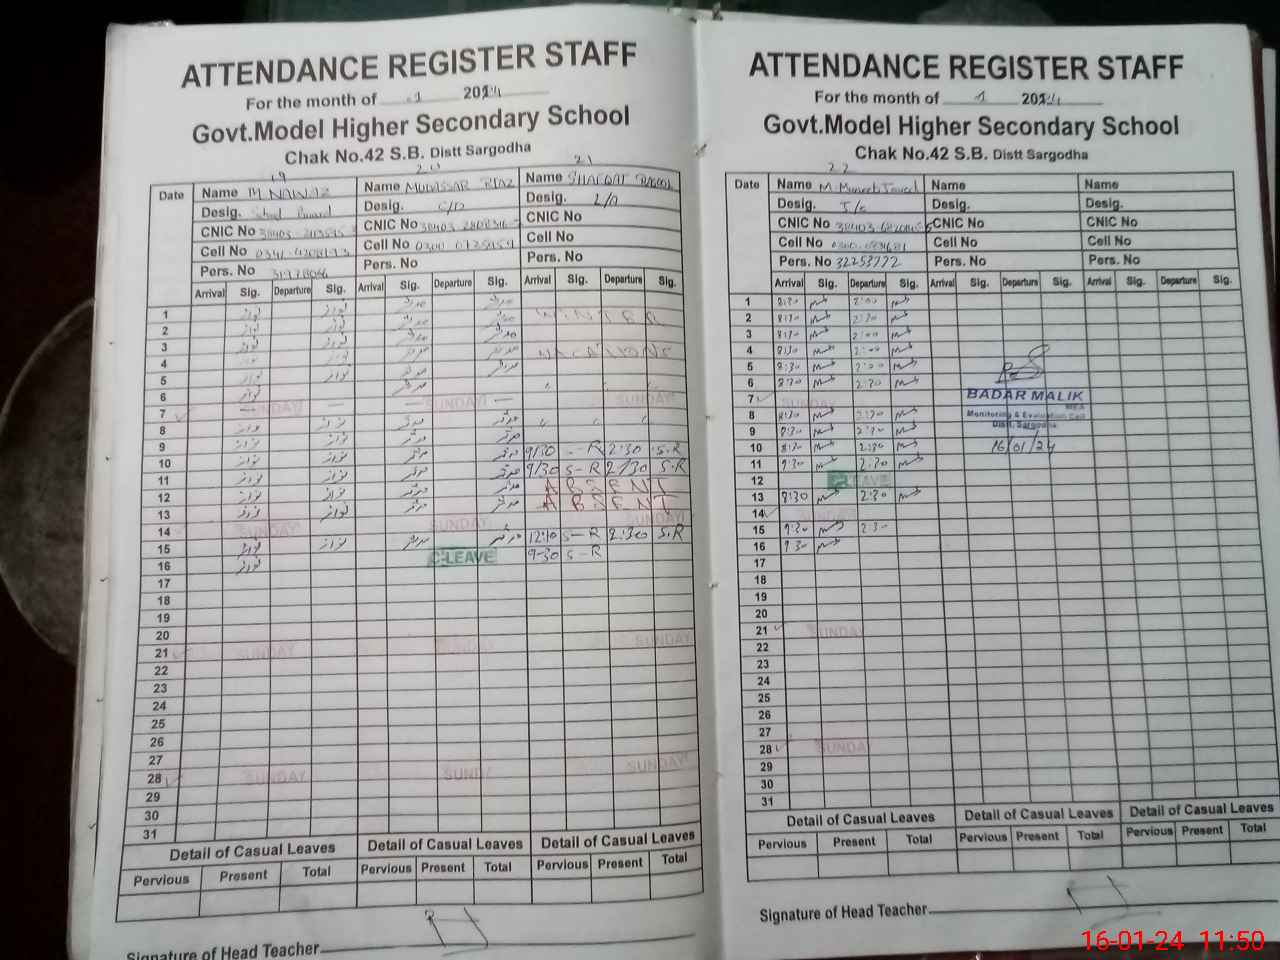 ATTENDANCE REGISTER STAFF
For the month of 1 2024
Govt.Model Higher Secondary School
Chak No.42 S.B. Distt Sargodha
19 20 21
Date Name M. NAWAZ Name MUDASSAR RIAZ Name SHAFQAT RASOOL
Desig. School Desig. C/D Desig. L/A
CNIC No CNIC No CNIC No
Cell No Cell No 0300 Cell No
Pers. No Pers. No Pers. No
Arrival Sig. Departure Sig. Arrival Sig. Departure Sig. Arrival Sig. Departure Sig.
1 نواز نواز مدثر مدثر WINTER
2 نواز نواز مدثر مدثر
3 نواز نواز مدثر مدثر VACATIONS
4 نواز نواز مدثر مدثر
5 نواز نواز مدثر مدثر
6 نواز مدثر
7 SUNDAY SUNDAY SUNDAY
8 نواز نواز مدثر مدثر
9 نواز نواز مدثر مدثر 9/30 - R 2:30 S.R
10 نواز نواز مدثر مدثر 9/30 S-R 2/30 S.R
11 نواز نواز مدثر مدثر ABSENT
12 نواز نواز مدثر مدثر ABSENT
13 نواز نواز مدثر مدثر
14 SUNDAY SUNDAY SUNDAY
15 نواز نواز مدثر مدثر 12:10 S-R 2:30 S.R
16 نواز C-LEAVE 9-30 S-R
17
18
19
20
21 SUNDAY SUNDAY SUNDAY
22
23
24
25
26
27
28 SUNDAY SUNDAY SUNDAY
29
30
31
Detail of Casual Leaves Detail of Casual Leaves Detail of Casual Leaves
Pervious Present Total Pervious Present Total Pervious Present Total
Signature of Head Teacher
ATTENDANCE REGISTER STAFF
For the month of 1 2024
Govt.Model Higher Secondary School
Chak No.42 S.B. Distt Sargodha
22
Date Name M. Muneeb Javed Name Name
Desig. J/C Desig. Desig.
CNIC No CNIC No CNIC No
Cell No Cell No Cell No
Pers. No 32253772 Pers. No Pers. No
Arrival Sig. Departure Sig. Arrival Sig. Departure Sig. Arrival Sig. Departure Sig.
1 8:30 2:00
2 8:30 2:30
3 8:30 2:00
4 8:30 2:00
5 8:30 2:00
6 8:30 2:30
7 SUNDAY
BADAR MALIK
MEA
Monitoring & Evaluation Cell
Distt. Sargodha
16/01/24
8 8:30 2:30
9 8:30 2:30
10 8:30 2:30
11 9:30 2:30
12 C-LEAVE
13 8:30 2:30
14 SUNDAY
15 9:30 2:30
16 9:30
17
18
19
20
21 SUNDAY
22
23
24
25
26
27
28 SUNDAY
29
30
31
Detail of Casual Leaves Detail of Casual Leaves Detail of Casual Leaves
Pervious Present Total Pervious Present Total Pervious Present Total
Signature of Head Teacher
16-01-24 11:50